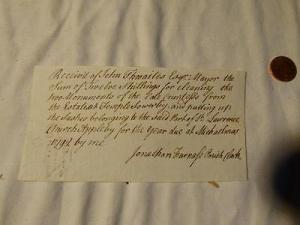 Receiv'd of John Thwaites Esqr. Mayor the
Sum of Twelve Shillings for cleaning the
two Monuments of the Late Countess from
the Estate at Temple Sowerby, and putting up
the belonging to the said Parish of St. Lawrence
Church Appleby for the Year due at Michaelmas
by me
Jonathan Furnass Parish Clerk